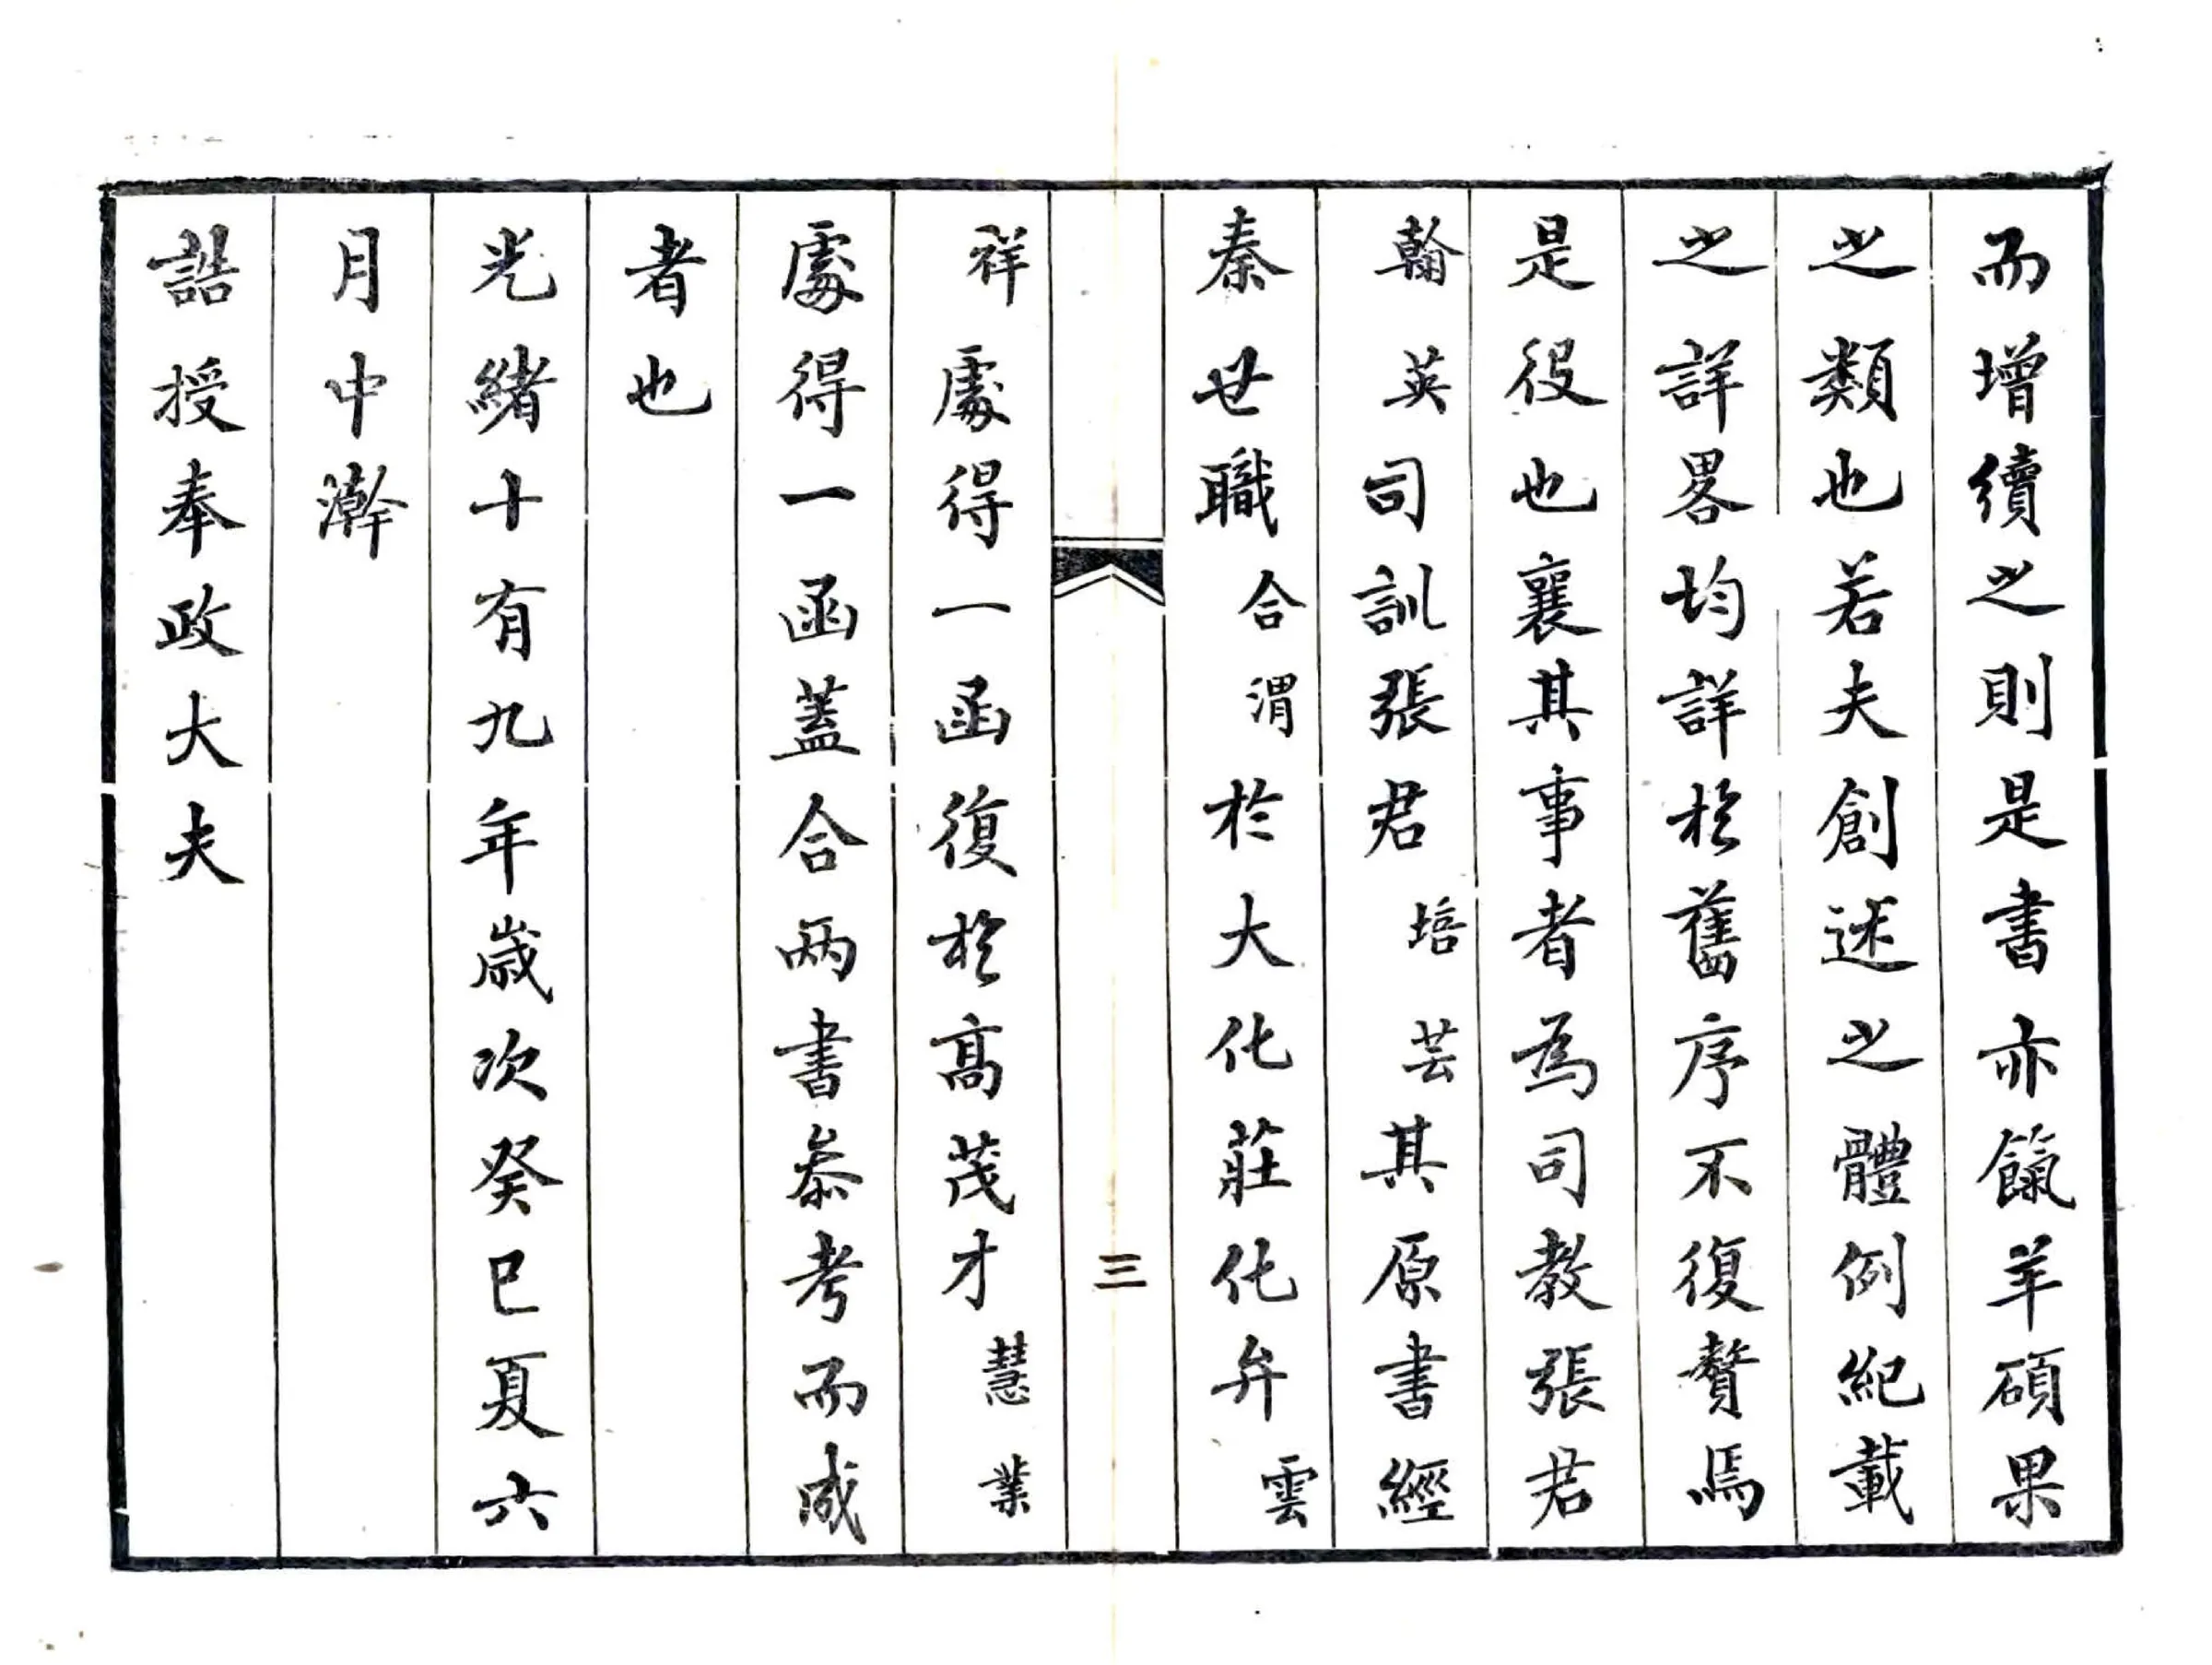 而增續之則是書亦餼羊碩果
之類也若夫創述之體例紀載
之詳畧均詳於舊序不復贅焉
是役也襄其事者為司教張君
翰英司訓張君培芸其原書經
秦世職合渭於大化莊化弁雲
三
祥處得一函復於高茂才慧業
處得一函蓋合兩書叅考而成
者也
光緒十有九年歲次癸巳夏六
月中澣
誥授奉政大夫